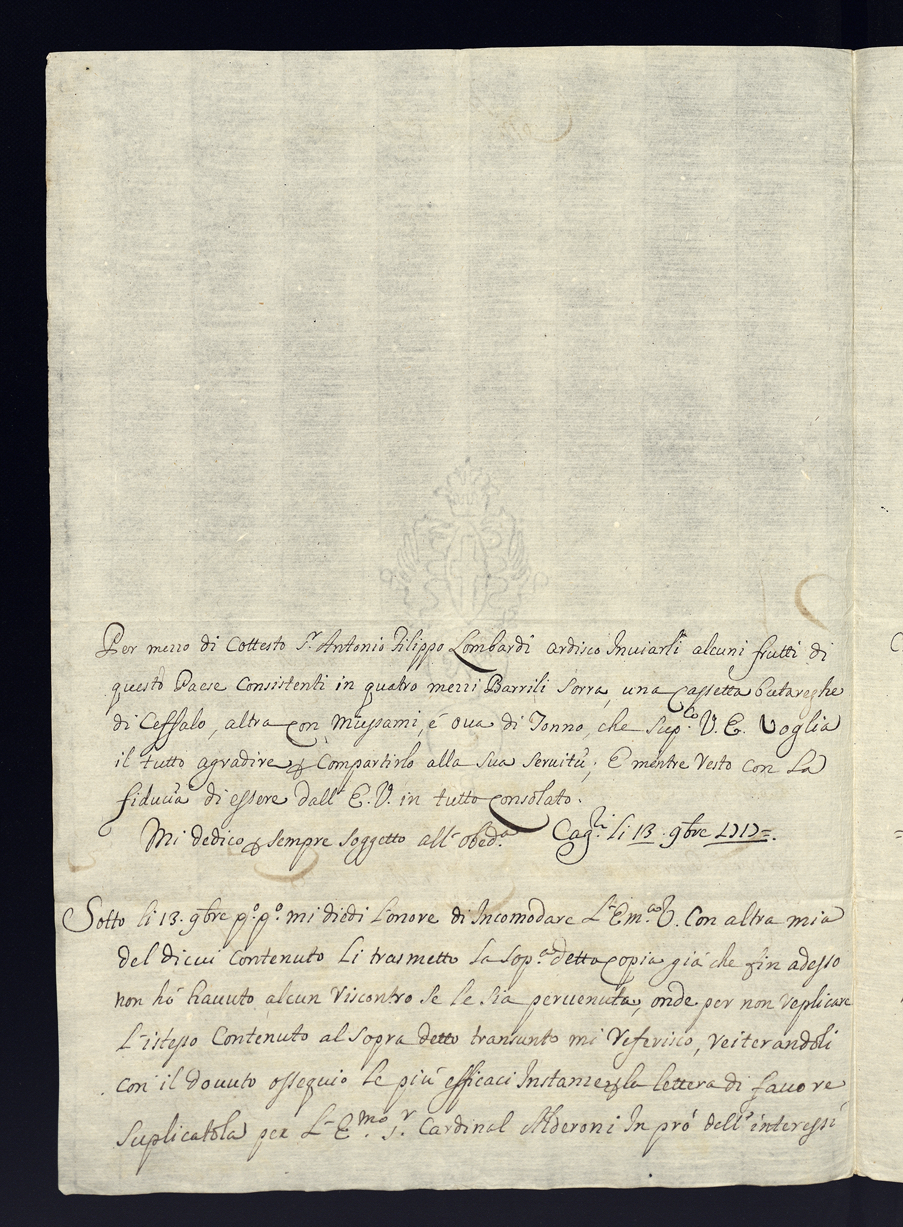 Per mezzo di Cottesto Sr. Antonio Filippo Lombardi ardisco Inuiarli alcuni frutti di
questo Paese Consistenti in quatro mezzi Barrili sorra, una Cassetta butareghe
di Ceffalo, altra Con Mussami, é oua di Tonno, che Supco. V. E. Voglia
il tutto agradire, e Compartirlo alla sua seruitù; E mentre resto con La
fiducia di essere dall' E. V. in tutto Consolato.
Mi dedico e sempre soggetto all' obeda. Cagri. li 13. 9bre 1717=.
Sotto li 13. 9bre po. po. mi diedi L'onore di Incomodare L'Ema. V. Con altra mia
del dicui Contenuto Li trasmetto La sopa. detta Copia già che fin adesso
non hó hauuto alcun riscontro se le sia peruenuta, onde per non replicare
L'istesso Contenuto al sopra detto transunto mi referisco, reiterandoli
con il douuto ossequio Le più efficaci Instanze la lettera di fauore
Suplicatola per L'Emo. Sr. Cardinal Alderoni In pró dell' interessi